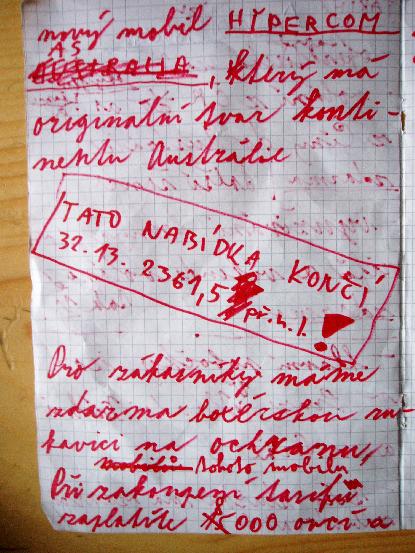 nový mobil HYPERCOM
AS
, který má
originální tvar konti-
nentu Austrálie
TATO NABÍDKA KONČÍ
32.13. 2361,5 př.n.l.!
Pro zákazníky máme
zdarma boxérskou ru-
kavici na ochranu
tohoto mobilu
Při zakoupení tarifu
zaplatíte 5000 ovcí a